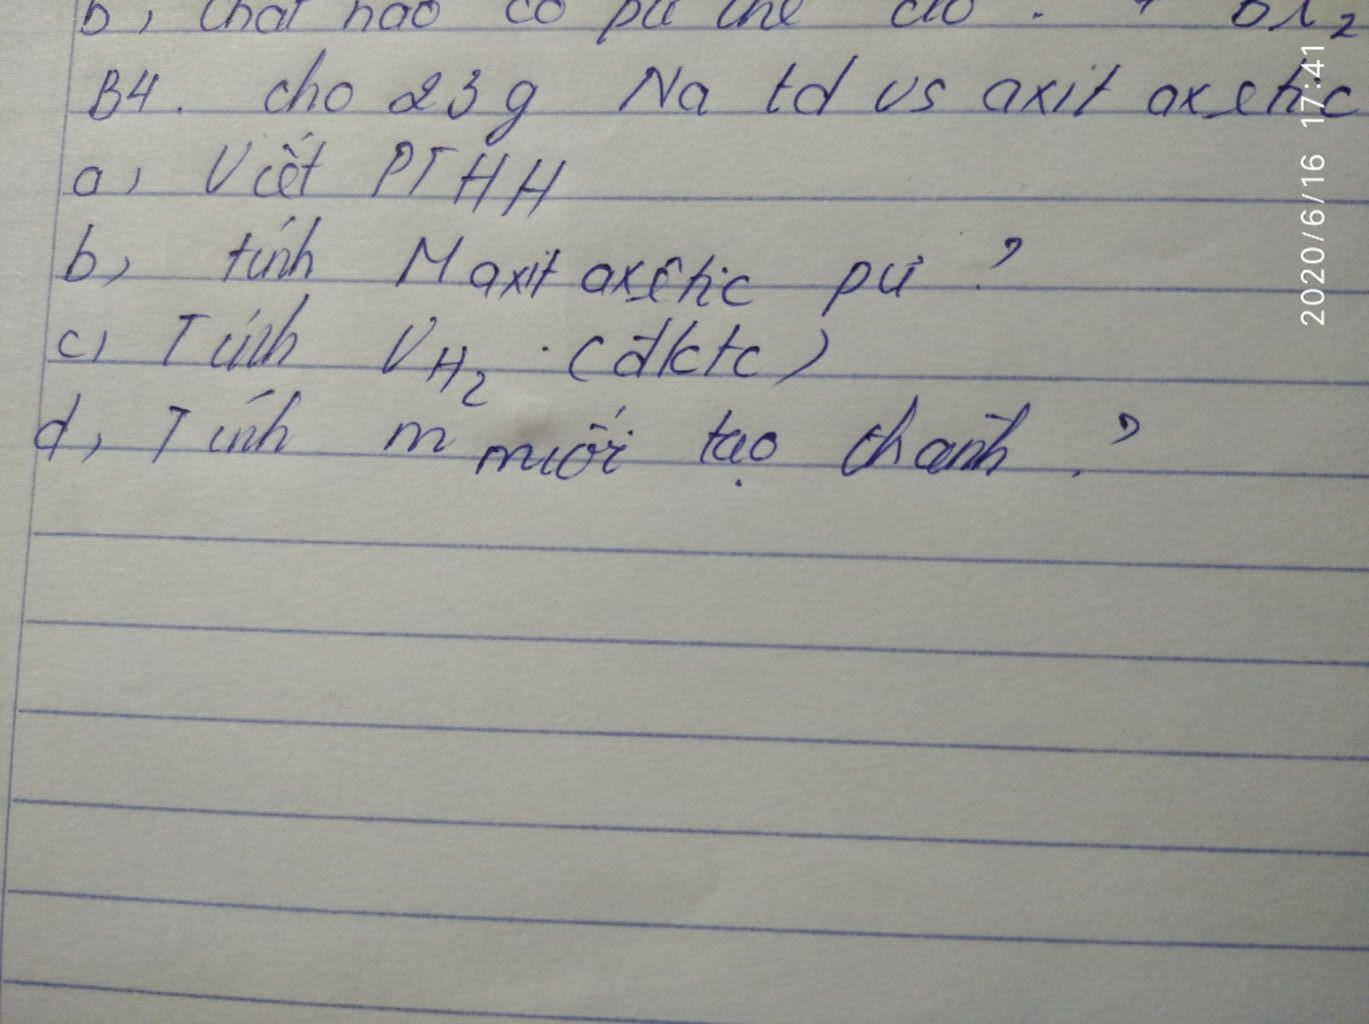 b, chất nào có pư thế do. + Br2
B4. cho 23g Na td vs axit axetic
a, Viết PTHH
b, tính M axit axêtic pư?
c, Tính VH2. (đktc)
d, Tính m muối tạo thành.?
2020/6/16 17:41